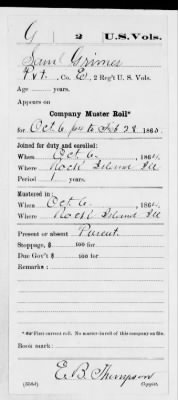 G 2 U.S. Vols.
Saml Grimes
Pvt., Co. E, 2 Reg't U. S. Vols.
Age years.
Appears on
Company Muster Roll*
for Oct 6, 64 to Feb 28, 1865.
Joined for duty and enrolled:
When Oct 6, 1864.
Where Rock Island Ill
Period 1 years.
Mustered in:
When Oct 6, 1864.
Where Rock Island Ill
Present or absent Present
Stoppage, $ 100 for
Due Gov't $ 100 for
Remarks:
First current roll. No muster-in roll of this company on file.
Book mark:
E. B. Thompson
Copyist.